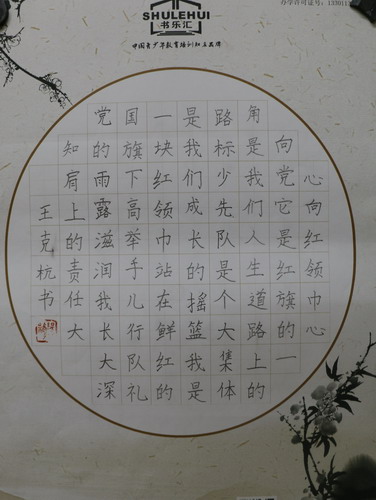 办学许可证号:
SHULEHUI
书乐汇
中国青少年教育培训知名品牌
心向红领巾心
向党它是红旗的一
角是我们人生道路上的
路标少先队是个大集体
是我们成长的摇篮我是
一块红领巾站在鲜红的
国旗下高举手儿行队礼
党的雨露滋润我长大深
知肩上的责任大
王克杭书